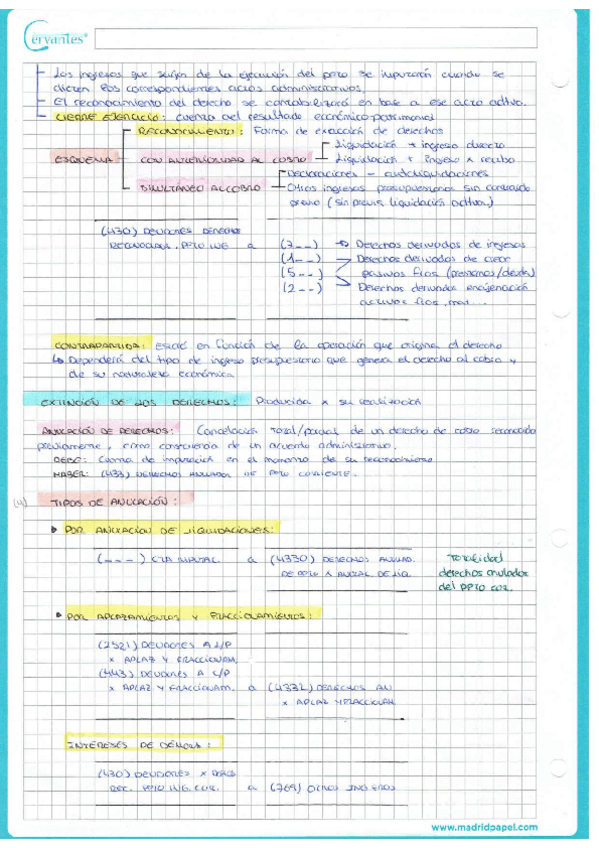 Cervantes®
Los ingresos que surjan de la ejecución del ppto se imputarán cuando se
dicten los correspondientes actos administrativos.
El reconocimiento del derecho se contabilizará en base a ese acto adtivo.
CIERRE EJERCICIO: cuenta del resultado económico-patrimonial
RECONOCIMIENTO: Forma de exacción de derechos
Liquidación + ingreso directo
ESQUEMA
CON ANTERIORIDAD AL COBRO
Liquidación + Ingreso x recibo
Declaraciones - autoliquidaciones
SIMULTÁNEO AL COBRO
Otros ingresos presupuestarios sin contraído
previo (sin previa liquidación adtiva)
(430) DEUDORES DERECHOS
RECONOCIDOS. PPTO ING a
(7--) → Derechos derivados de ingresos
(1--) Derechos derivados de
(5--) pasivos fros (préstamos/deuda)
(2--) Derechos derivados enajenación
activos fros,
CONTRAPARTIDA: estará en función de la operación que origina el derecho
↳ Dependerá del tipo de ingreso presupuestario que genera el derecho al cobro y
de su naturaleza económica
EXTINCIÓN DE LOS DERECHOS: Producida x su realización
ANULACIÓN DE DERECHOS: Cancelación total/parcial de un derecho de cobro reconocido
previamente, como consecuencia de un acuerdo administrativo.
DEBE: Cuenta de imputación en el momento de su reconocimiento
HABER: (433) DERECHOS ANULADOS DE PPTO CORRIENTE.
TIPOS DE ANULACIÓN:
▸ POR ANULACIÓN DE LIQUIDACIONES:
(---) CTA a (4330) DERECHOS ANULAD.
DE PPTO x ANULAC. DE LIQ.
Totalidad
derechos anulados
del PPTO cor.
▸ POR APLAZAMIENTOS Y FRACCIONAMIENTOS:
(2521) DEUDORES A L/P
x APLAZ Y FRACCIONAM.
(443) DEUDORES A C/P
x APLAZ Y FRACCIONAM. a (4332) DERECHOS AN
x APLAZ Y FRACCIONAM
INTERESES DE DEMORA:
(430) DEUDORES x DERECS
REC. PPTO ING. COR. a (769) OTROS INGRESOS
www.madridpapel.com